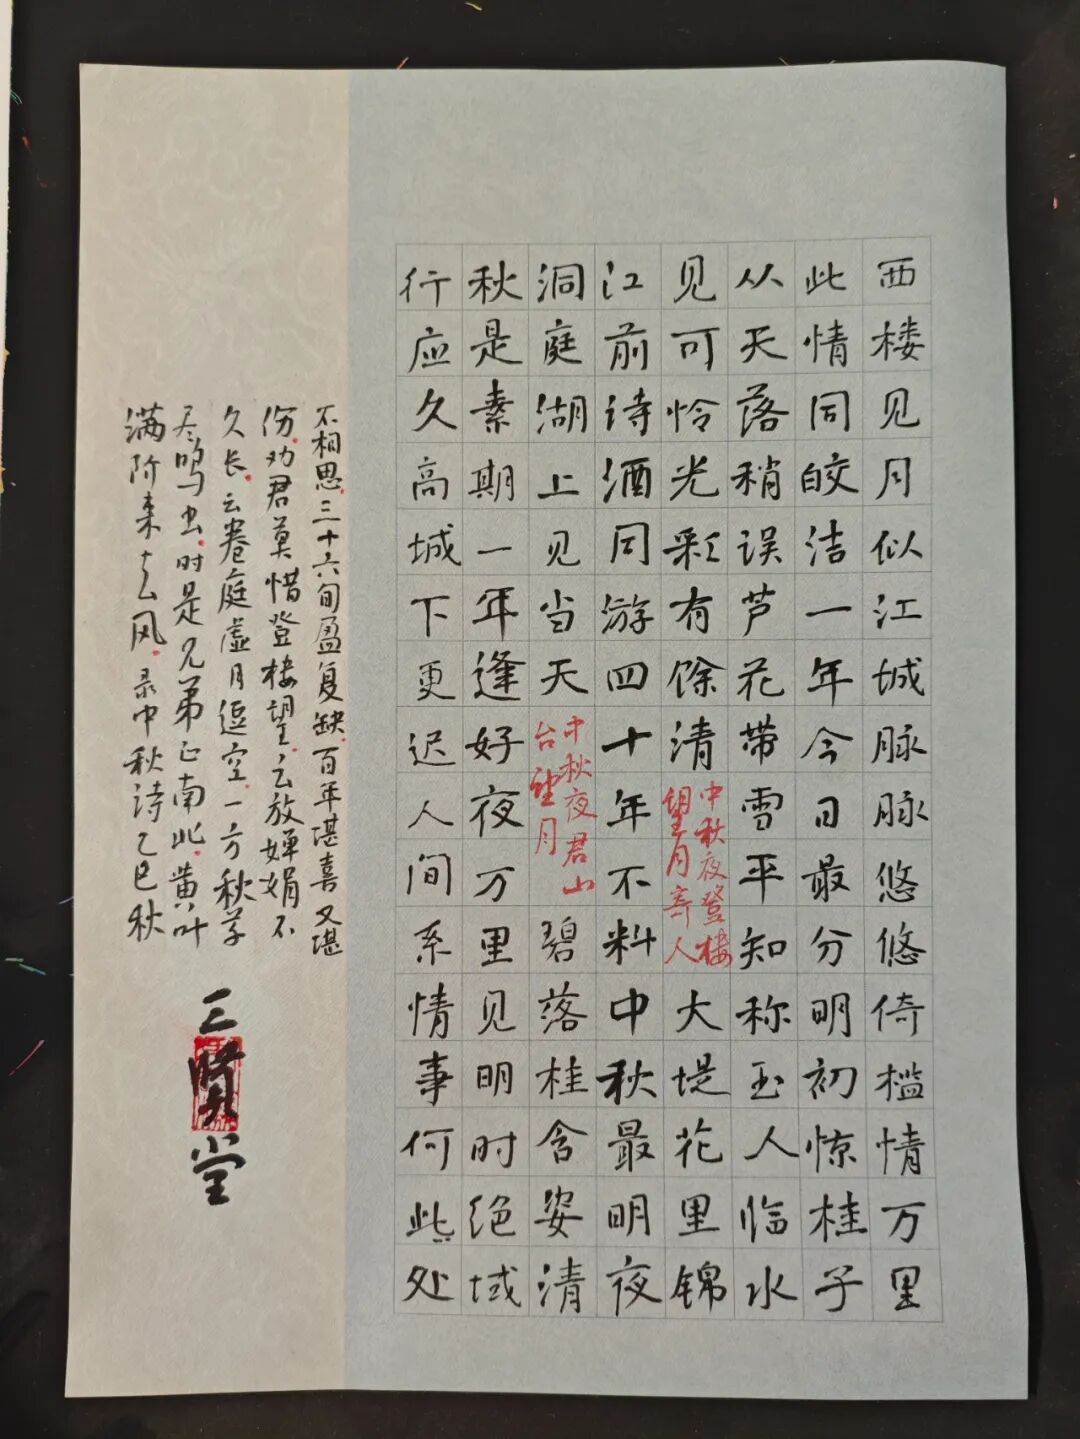 西楼见月似江城脉脉悠悠倚槛情万里
此情同皎洁一年今日最分明初惊桂子
从天落稍误芦花带雪平知称玉人临水
见可怜光彩有馀清
中秋夜登楼
望月寄人
大堤花里锦
江前诗酒同游四十年不料中秋最明夜
洞庭湖上见当天
中秋夜君山
台望月
碧落桂含姿清
秋是素期一年逢好夜万里见明时绝域
行应久高城下更迟人间系情事何此处
不相思三十六旬盈复缺百年堪喜又堪
伤劝君莫惜登楼望云放婵娟不
久长云卷庭虚月逗空一方秋草
尽鸣虫时是兄弟正南北黄叶
满阶来去风录中秋诗乙巳秋
三贤堂